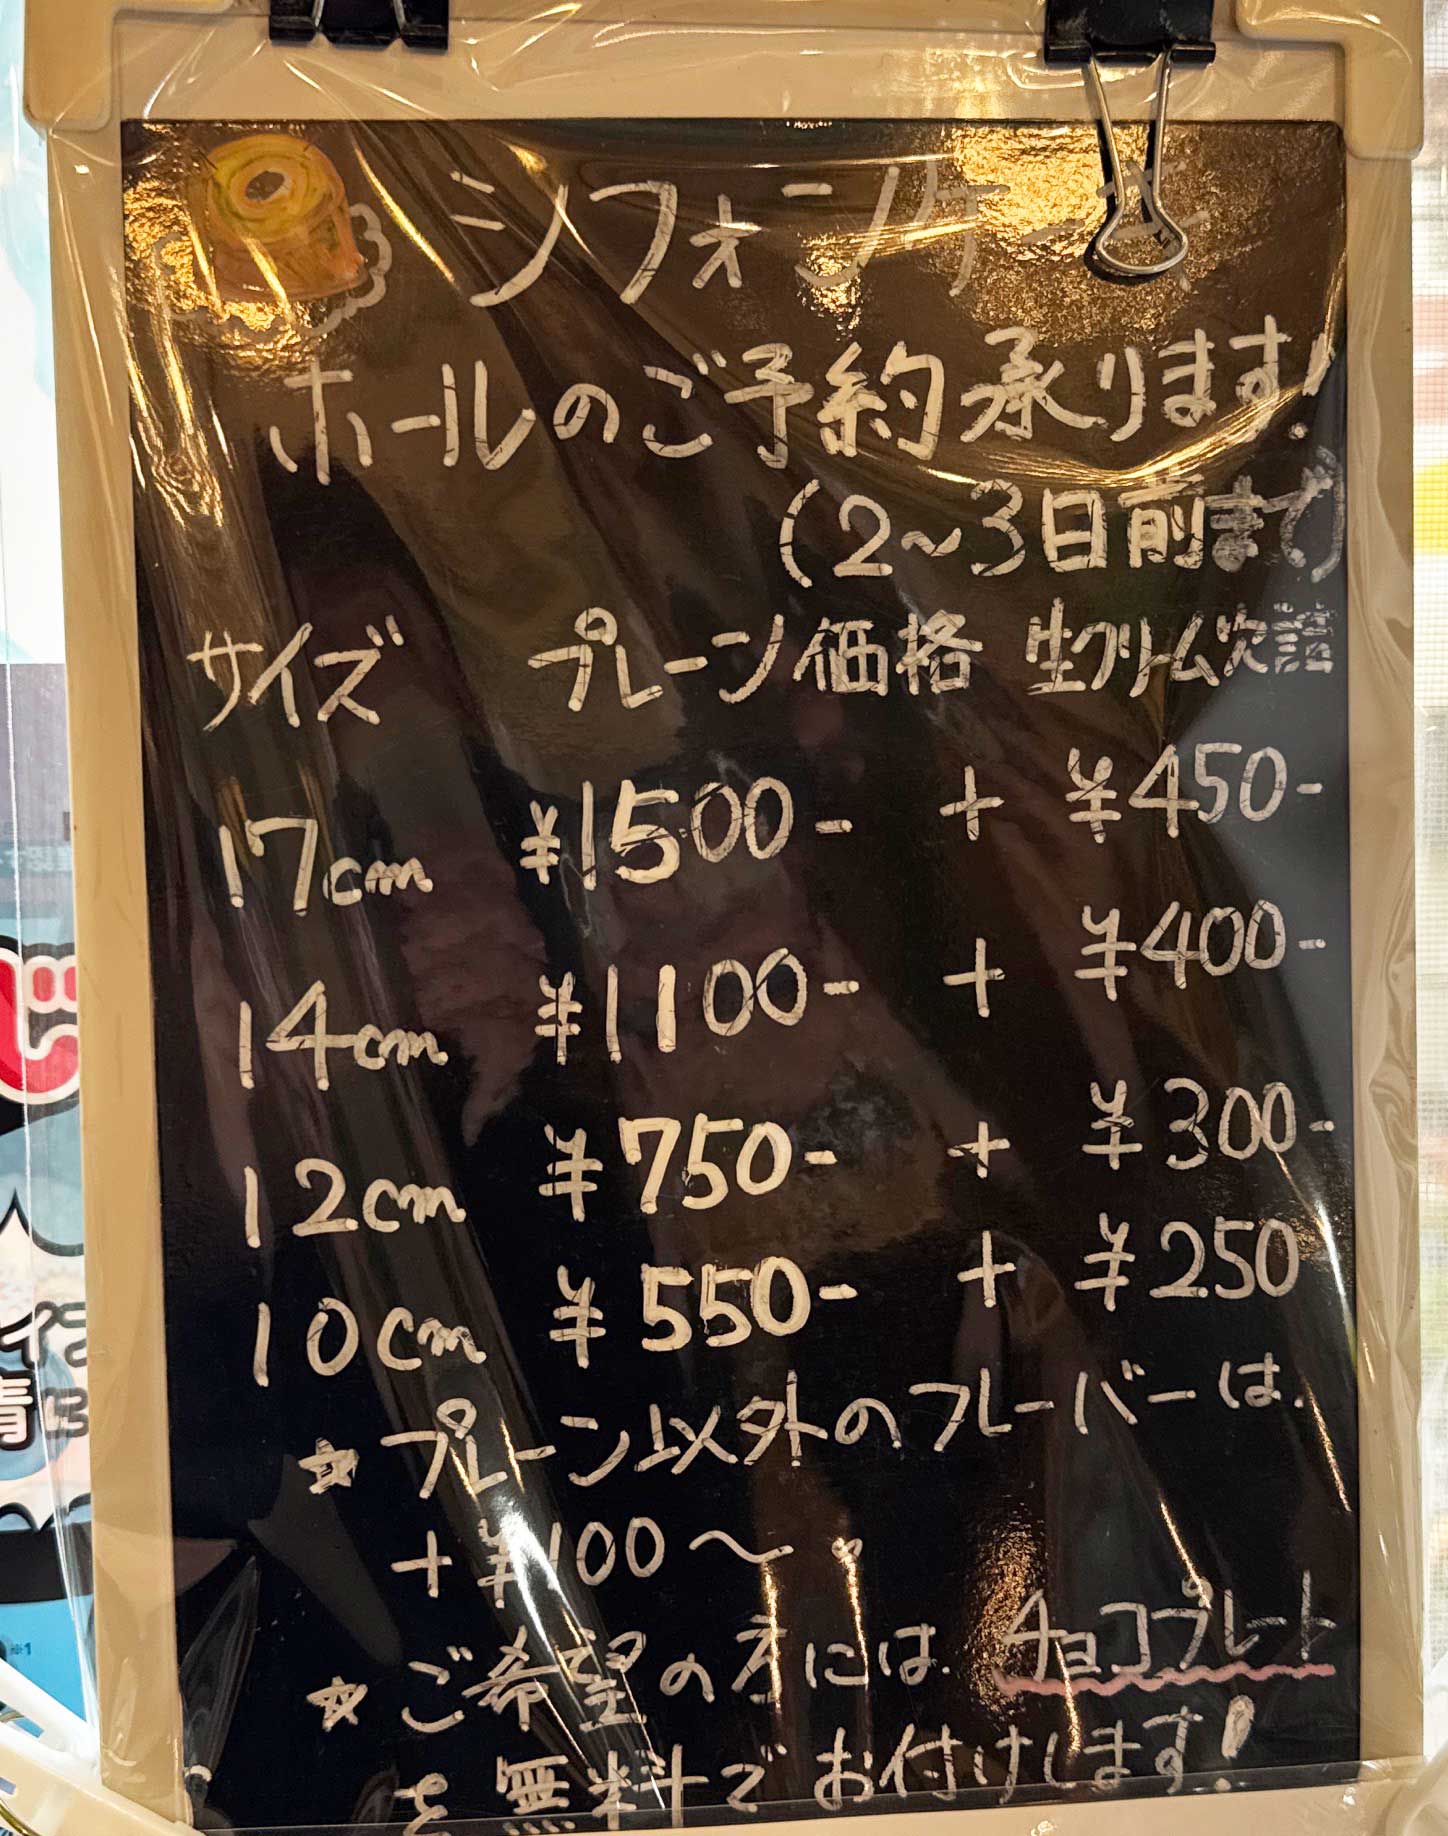 シフォンケーキ
ホールのご予約承ります!
(2~3日前まで)
サイズ プレーン価格 生クリーム
17cm ¥1500- + ¥450-
14cm ¥1100- + ¥400-
12cm ¥750- + ¥300-
10cm ¥550- + ¥250
☆プレーン以外のフレーバーは、
+¥100~。
☆ご希望の方には、チョコプレート
を無料でお付けします!